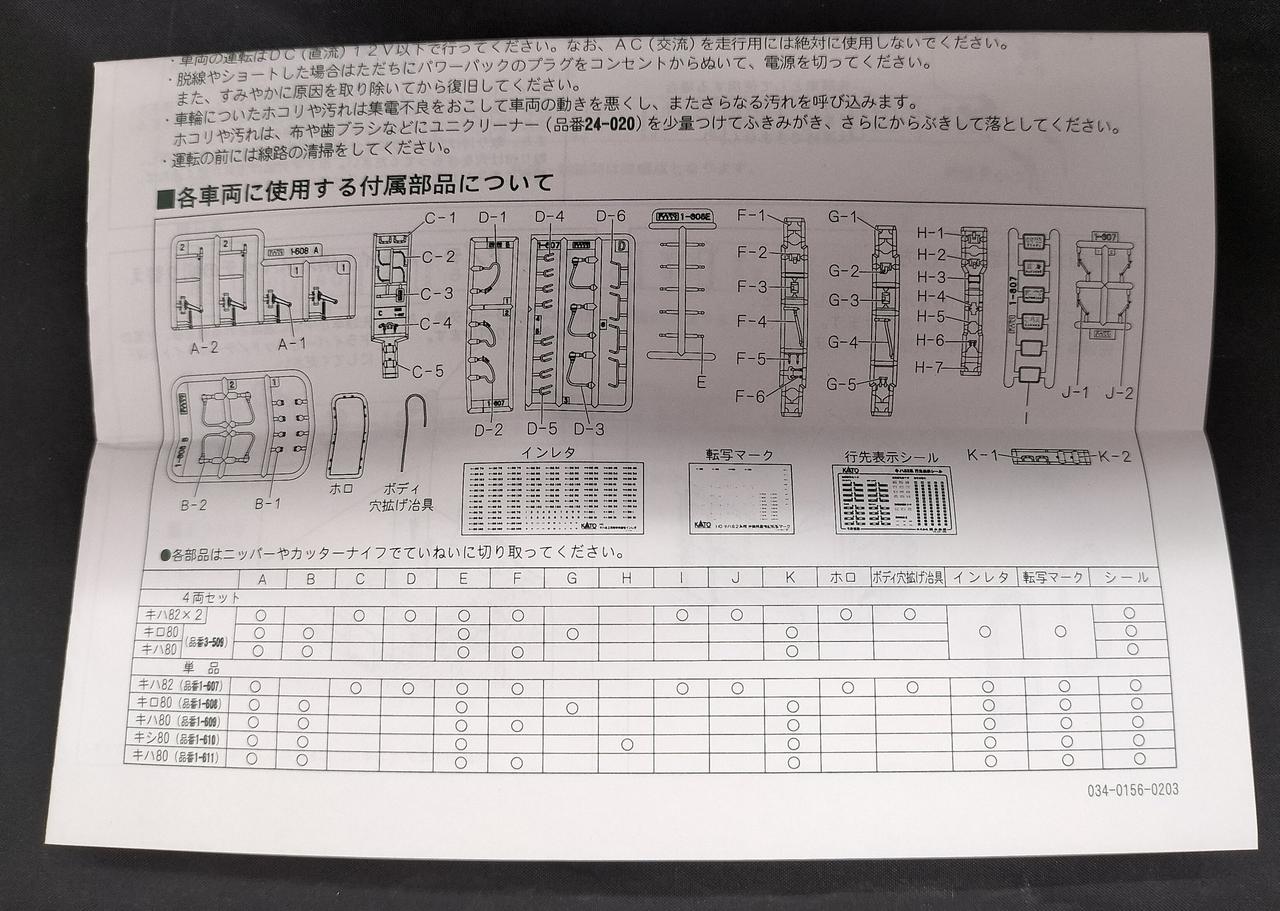 ・車両の運転はDC(直流)12V以下で行ってください。なお、AC(交流)を走行用には絶対に使用しないでください。
・脱線やショートした場合はただちにパワーパックのプラグをコンセントからぬいて、電源を切ってください。
また、すみやかに原因を取り除いてから復旧してください。
・車輪についたホコリや汚れは集電不良をおこして車両の動きを悪くし、またさらなる汚れを呼び込みます。
ホコリや汚れは、布や歯ブラシなどにユニクリーナー(品番24-020)を少量つけてふきみがき、さらにからぶきして落としてください。
・運転の前には線路の清掃をしてください。
■各車両に使用する付属部品について
2 2 KATO 1-608 A 1 1
A-2 A-1
C-1
C-2
C-3
C-4
C-5
C
D-1 D-4 D-6
1-607 D
1-607
D-2 D-5 D-3
KATO 1-608E
E
F-1
F-2
F-3
F-4
F-5
F-6
G-1
G-2
G-3
G-4
G-5
H-1
H-2
H-3
H-4
H-5
H-6
H-7
KATO 1-607
I
1-607
J-1 J-2
KATO 1-608 B 2 1
B-2 B-1
ホロ
ボディ
穴拡げ治具
インレタ
KATO
転写マーク
KATO
行先表示シール
KATO キハ82系 行先表示シール
K-1 K-2
●各部品はニッパーやカッターナイフでていねいに切り取ってください。
A B C D E F G H I J K ホロ ボディ穴拡げ治具 インレタ 転写マーク シール
4両セット
キハ82×2 ○ ○ ○ ○ ○ ○ ○ ○ ○ ○
キロ80 (品番3-509) ○ ○ ○ ○ ○ ○ ○ ○
キハ80 ○ ○ ○ ○ ○ ○
単品
キハ82(品番1-607) ○ ○ ○ ○ ○ ○ ○ ○ ○ ○ ○ ○
キロ80(品番1-608) ○ ○ ○ ○ ○ ○ ○ ○
キハ80(品番1-609) ○ ○ ○ ○ ○ ○ ○ ○
キシ80(品番1-610) ○ ○ ○ ○ ○ ○ ○ ○
キハ80(品番1-611) ○ ○ ○ ○ ○ ○ ○ ○
034-0156-0203